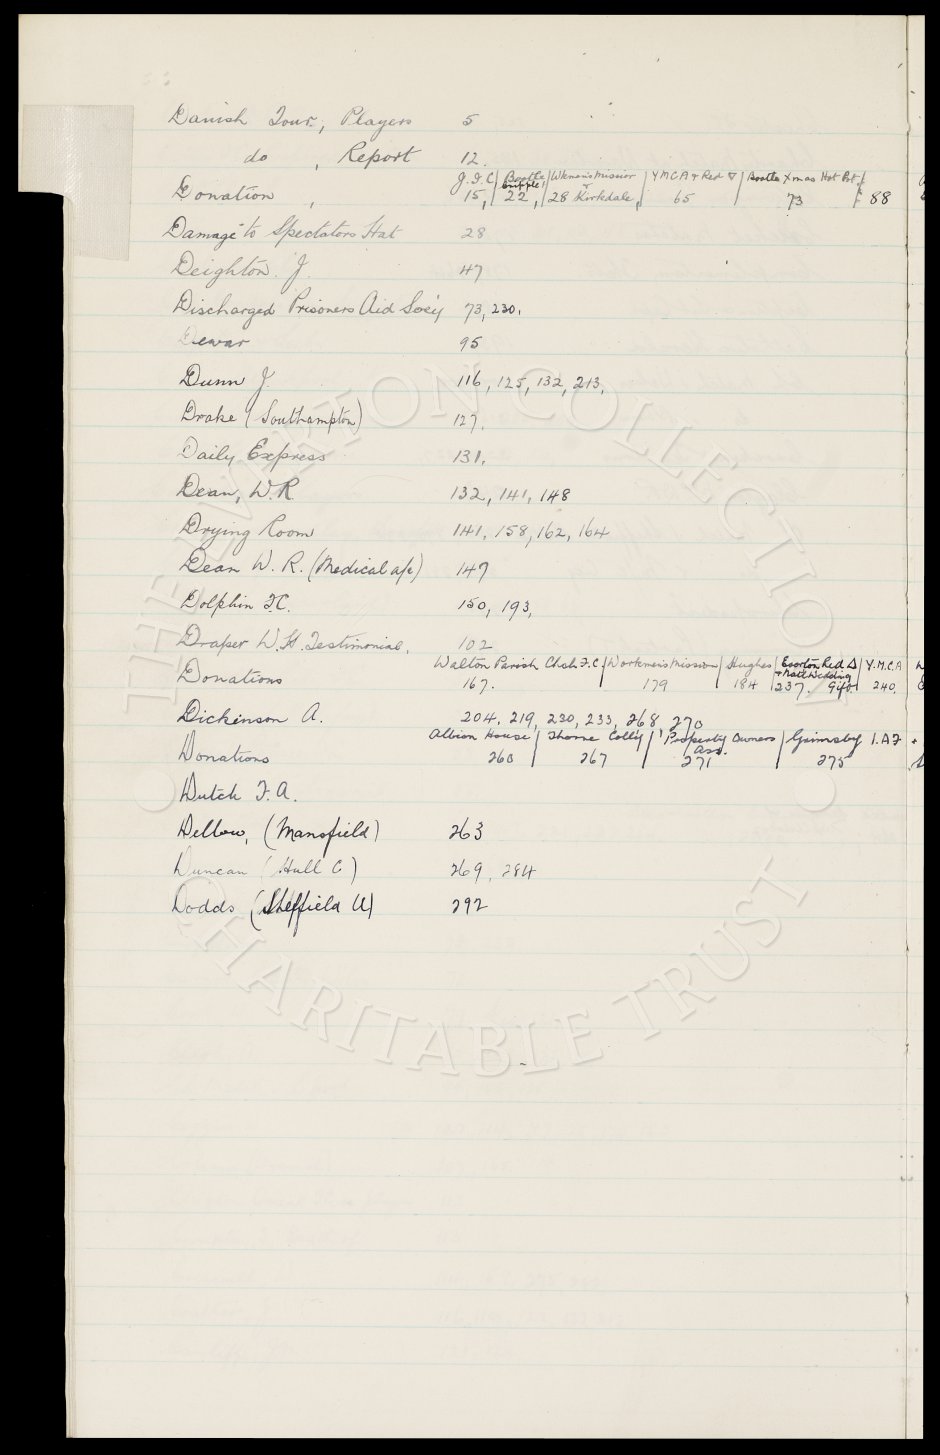 Danish Tour, Players 5
do , Report 12.
J.F.C Bootle Cripple Wkmen's Mission + YMCA + Red ▽ Bootle Xmas Hot Pot
Donation , 15, 22, 28 Kirkdale, 65 73 88
Damage to Spectators Hat 28
Deighton. J. 47
Discharged Prisoners Aid Soc'y 73, 230.
Dewar 95
Dunn J. 116, 125, 132, 213,
Drake (Southampton) 127.
Daily Express 131.
Dean, W.R. 132, 141, 148
Drying Room 141, 158, 162, 164
Dean W. R. (Medical a/c) 147
Dolphin F.C. 150, 193,
Draper W.H. Testimonial. 102
Walton Parish Chch F.C. Workmen's Mission Hughes Everton Red △ + Natl Wedding Y.M.C.A
Donations 167. 179 184 237. Gift. 240.
Dickinson A. 204, 219, 230, 233, 268, 270
Albion House Thorne Coll'y Property Owners Ass. Grimsby 1.A.F
Donations 260 267 271 275
Dutch F.A.
Dellow, (Mansfield) 263
Duncan (Hull C) 269, 284
Dodds (Sheffield U) 292
THE EVERTON COLLECTION
CHARITABLE TRUST